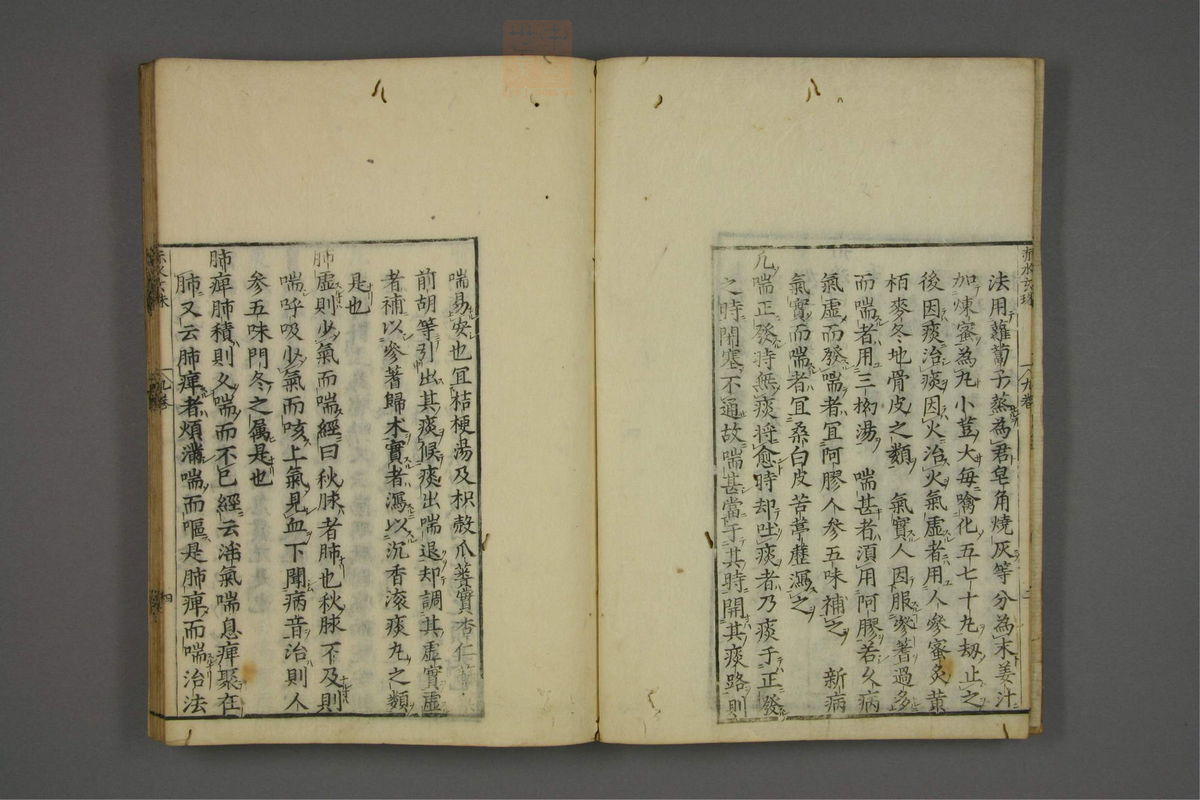 法用蘿蔔子蒸為君皂角燒灰等分為末姜汁
加煉蜜為丸小荳大每噙化五七十丸刼止之
後因痰治痰因火治火氣虛者用人參蜜炙蘗
栢麥冬地骨皮之類　氣實人因服參蓍過多
而喘者用三拗湯　喘甚者須用阿膠若久病
氣虛而發喘者宜阿膠人參五味補之　新病
氣實而喘者宜桑白皮苦葶藶瀉之
凢喘正發時無痰将愈時却吐痰者乃痰于正發
之時閉塞不通故喘甚當于其時開其痰路則
喘易安也宜桔梗湯及枳殻瓜蔞實杏仁
前胡等引出其痰候痰出喘退却調其虛實虛
者補以參蓍歸术實者瀉以沉香滚痰丸之類
是也
肺虛則少氣而喘經曰秋脉者肺也秋脉不及則
喘呼吸少氣而咳上氣見血下聞病音治則人
參五味門冬之属是也
肺痺肺積則久喘而不已經云滛氣喘息痺聚在
肺又云肺痺者煩滿喘而嘔是肺痺而喘治法
赤水玄珠
九卷
四